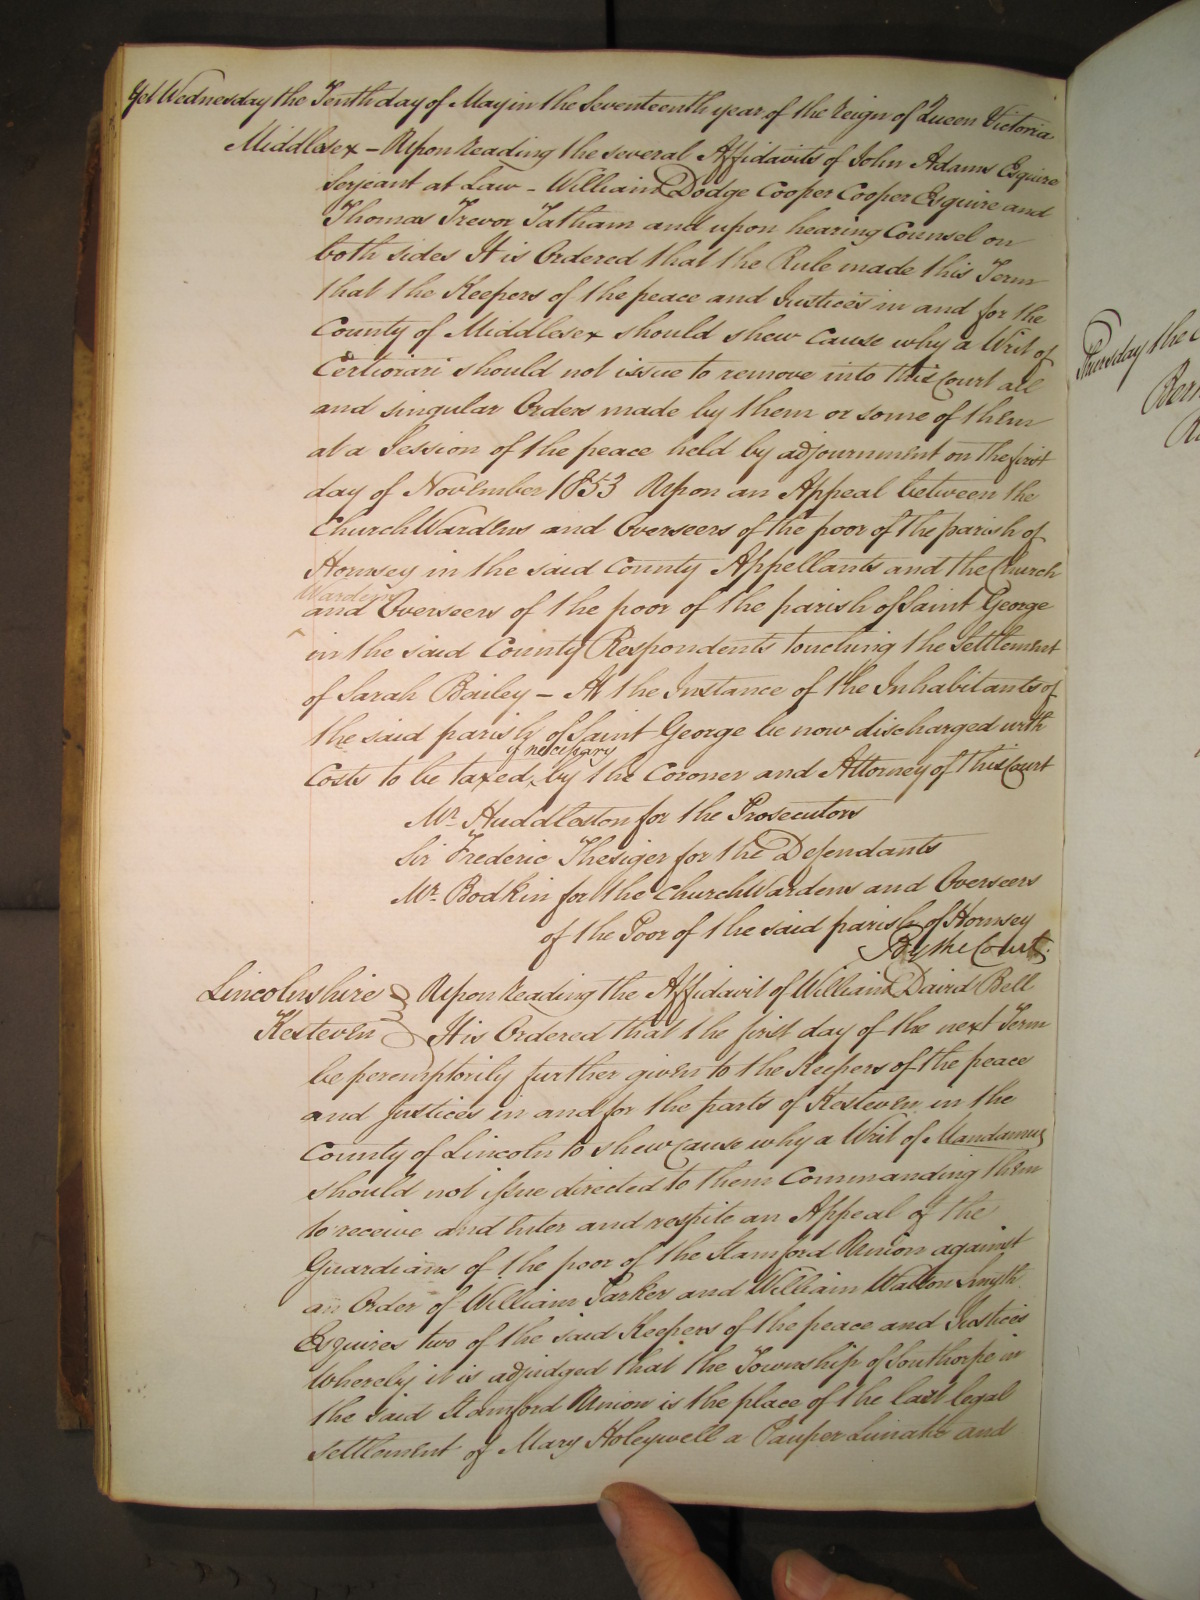 Yet Wednesday the Tenth day of May in the Seventeenth year of the Reign of Queen Victoria
Middlesex – Upon Reading the several Affidavits of John Adams Esquire
Serjeant at Law – William Dodge Cooper Cooper Esquire and
Thomas Trevor Tatham and upon hearing Counsel on
both sides It is Ordered that the Rule made this Term
that the Keepers of the peace and Justices in and for the
County of Middlesex should shew Cause why a Writ of
Certiorari should not issue to remove into this Court all
and singular Orders made by them or some of them
at a Session of the peace held by adjournment on the first
day of November 1853 Upon an Appeal between the
ChurchWardens and Overseers of the poor of the parish of
Hornsey in the said County Appellants and the Church
Wardens
and Overseers of the poor of the parish of Saint George
in the said County Respondents touching the Settlement
of Sarah Bailey – At the Instance of the Inhabitants of
the said parish of Saint George be now discharged with
if necessary
Costs to be taxed by the Coroner and Attorney of this Court
Mr. Huddleston for the Prosecutors
Sir Frederic Thesiger for the Defendants
Mr. Bodkin for the ChurchWardens and Overseers
of the Poor of the said parish of Hornsey
By the Court.
Lincolnshire Upon Reading the Affidavit of William David Bell
Kesteven It is Ordered that the first day of the next Term
be peremptorily further given to the Keepers of the peace
and Justices in and for the parts of Kesteven in the
County of Lincoln to shew cause why a Writ of Mandamus
should not issue directed to them Commanding them
to receive and enter and respite an Appeal of the
Guardians of the poor of the Stamford Union against
an Order of William Parker and William Watson Smyth
Esquires two of the said Keepers of the peace and Justices
Whereby it is adjudged that the Township of Southorpe in
the said Stamford Union is the place of the last legal
settlement of Mary Holeywell a Pauper Lunatic and
Thursday the